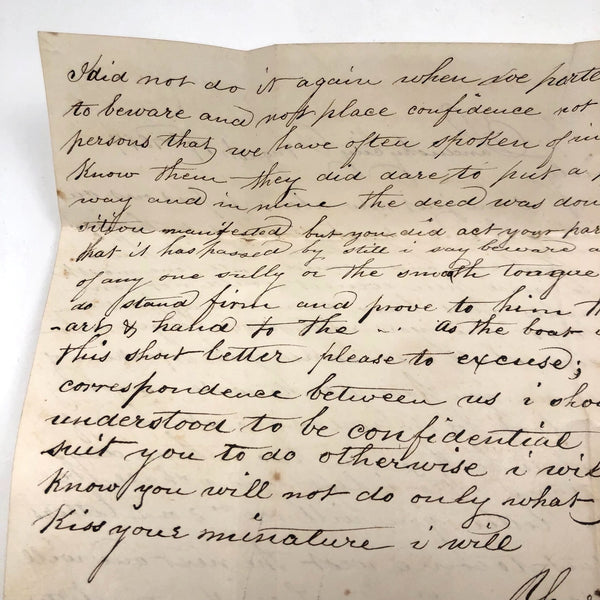 I did not do it again when we parte
to beware and not place confidence not
persons that we have often spoken of in
Know them they did dare to put a
way and in mine the deed was don
sition manifested but you did act your par
that it has passed by still i say beware a
of any one sully or the smooth tongue
do stand firm and prove to him th
-art & hand to the - . As the boat
this short letter please to excuse;
correspondence between us i shou
understood to be confidential
suit you to do otherwise i wil
Know you will not do only what
Kiss your minature i will